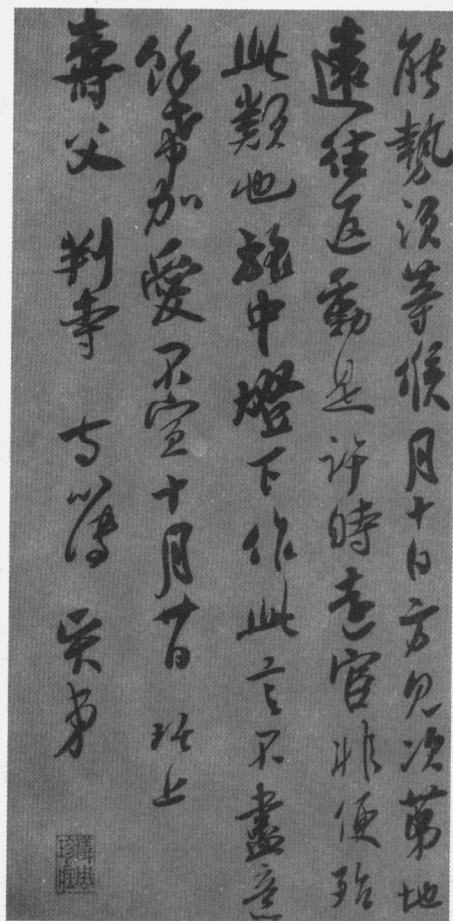 能勢須等候月十日方見次第地
遠往返動是許時遠宦非便殆
此類也旅中燈下作此言不盡意
餘希加愛不宣十月廿日 琚上
壽父 判寺 寺簿 賢弟